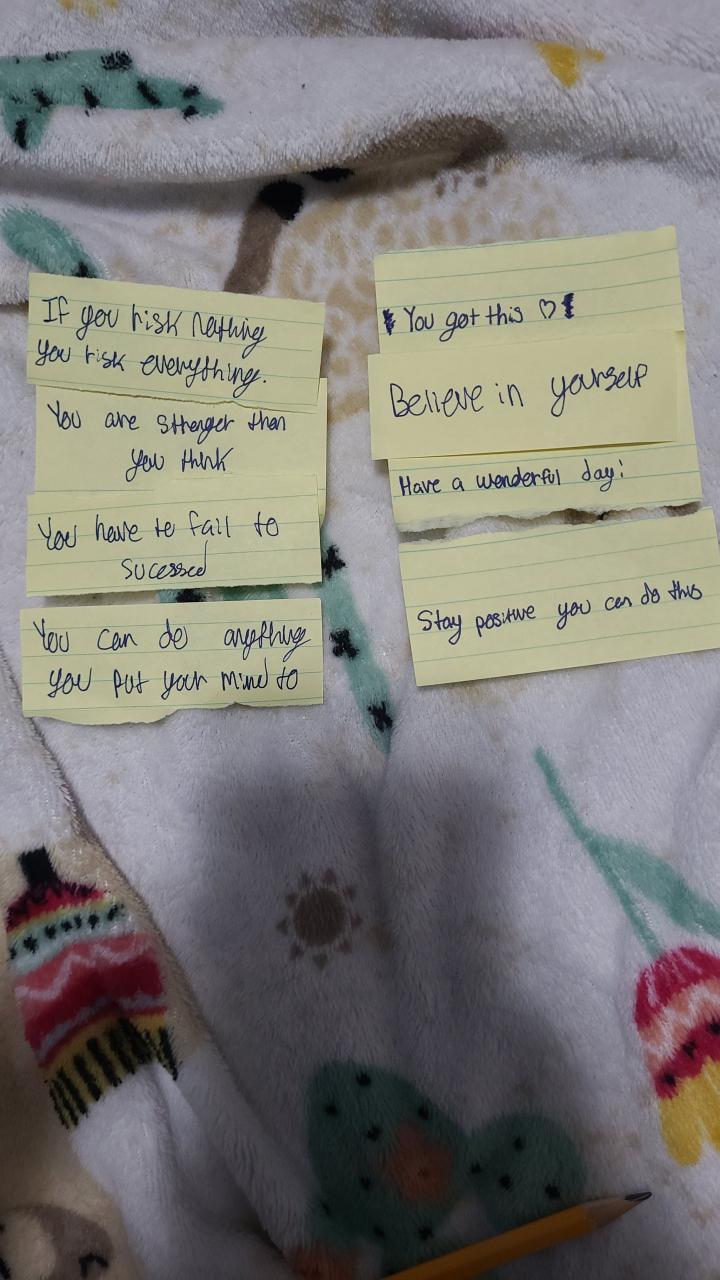 If you risk nothing
you risk everything.
You are stronger than
you think
You have to fail to
sucessed
You can do anything
you put your mind to
You got this ♡
Believe in yourself
Have a wonderful day!
Stay positive you can do this